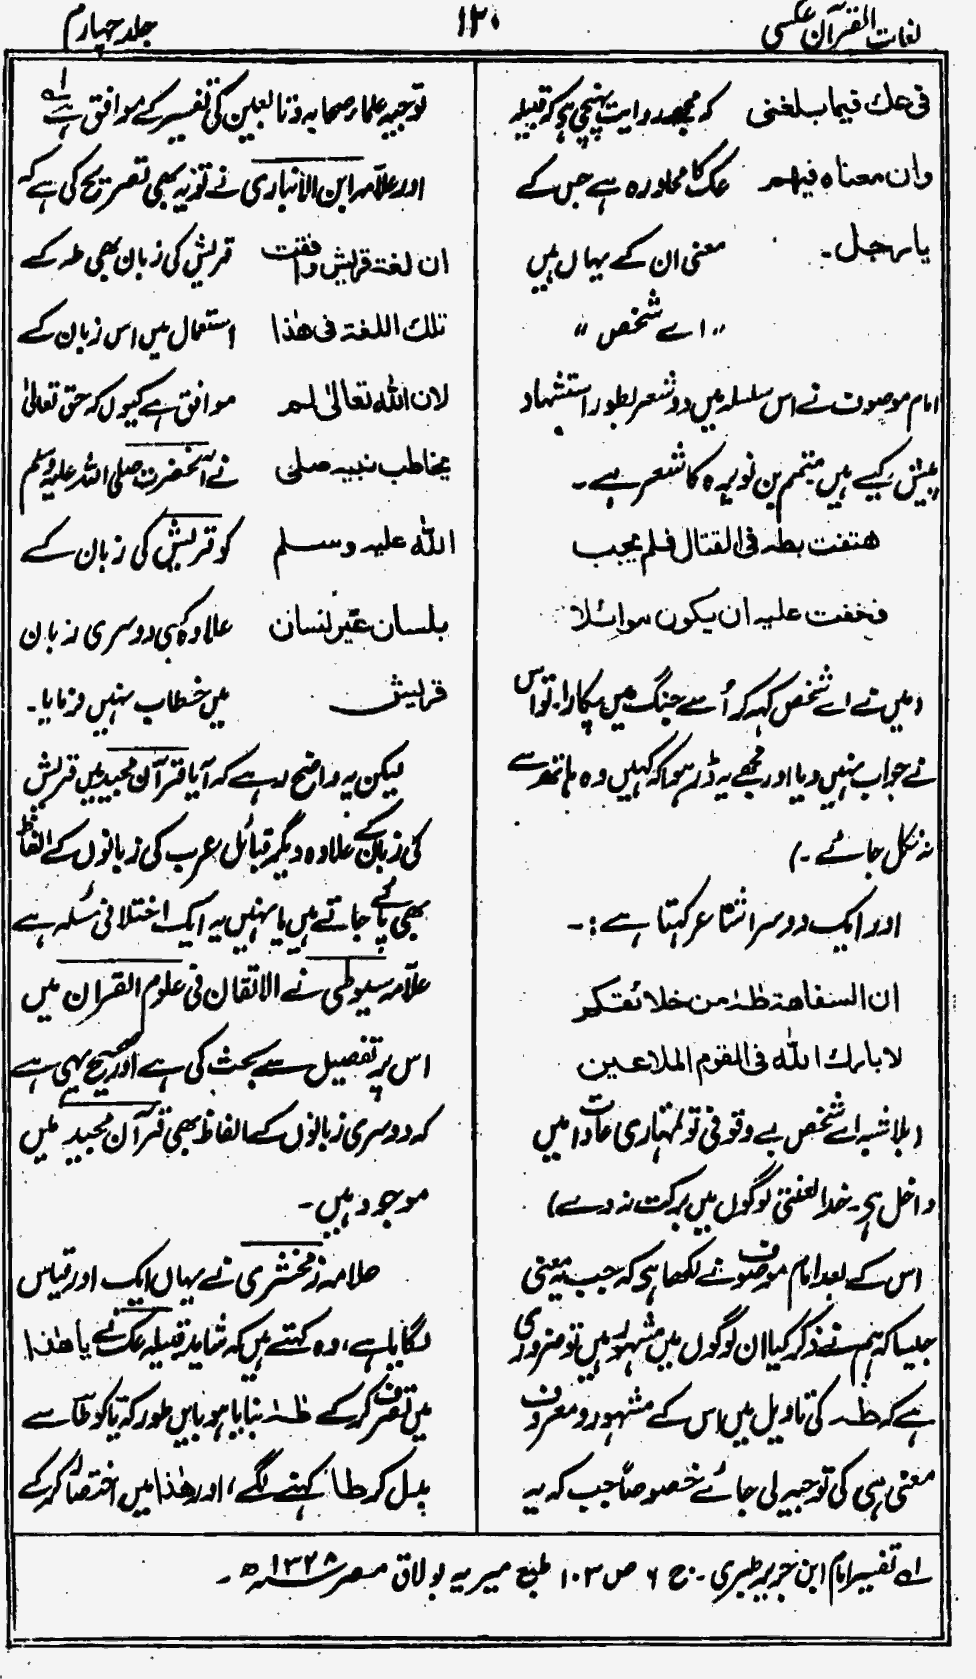 لغات القرآن عکسی
۱۲۰
جلد چہارم
فی عك فیما بلغنی کہ مجھے روایت پہنچی ہے کہ قبیلہ
وان معناه فیهم عک کا محاورہ ہے جس کے
یا رجل۔ معنی ان کے یہاں ہیں
"اے شخص"
امام موصوف نے اس سلسلہ میں دو شعر بطور استشہاد
پیش کیے ہیں متمم بن نویرہ کا شعر ہے۔
هتفت بطه فی القتال فلم یجب
فخفت علیه ان یکون موائلا
(میں نے اے شخص کہہ کر اُسے جنگ میں پکارا، تو اس
نے جواب نہیں دیا اور مجھے یہ ڈر ہوا کہ کہیں وہ ہاتھ سے
نہ نکل جائے۔)
اور ایک دوسرا شاعر کہتا ہے:۔
ان السفاهة طٰهٰ من خلائقکم
لا بارك الله فی القوم الملاعین
(بلاشبہ اے شخص بے وقوفی تو تمہاری عادات میں
داخل ہے۔ خدا لعنتی لوگوں میں برکت نہ دے)
اس کے بعد امام موصوف نے لکھا ہے کہ جب یہ معنی
جیسا کہ ہم نے ذکر کیا ان لوگوں میں مشہور ہیں تو ضروری
ہے کہ طٰہٰ کی تاویل میں اس کے مشہور و معروف
معنی ہی کی توجیہ لی جائے خصوصاً جب کہ یہ
توجیہ علماء صحابہ و تابعین کی تفسیر کے موافق ہے ؎۱
اور علامہ ابن الانباری نے تو یہ بھی تصریح کی ہے کہ
ان لغة قریش وافقت قریش کی زبان بھی طہ کے
تلك اللغة فی هٰذا استعمال میں اس زبان کے
لان الله تعالیٰ لم موافق ہے کیوں کہ حق تعالیٰ
یخاطب نبیه صلی نے آنحضرت صلی اللہ علیہ وسلم
الله علیه وسلم کو قریش کی زبان کے
بلسان غیر لسان علاوہ کسی دوسری زبان
قریش میں خطاب نہیں فرمایا۔
لیکن یہ واضح رہے کہ آیا قرآن مجید میں قریش
کی زبان کے علاوہ دیگر قبائل عرب کی زبانوں کے الفاظ
بھی پائے جاتے ہیں یا نہیں یہ ایک اختلافی مسئلہ ہے
علامہ سیوطی نے الاتقان فی علوم القرآن میں
اس پر تفصیل سے بحث کی ہے اور صحیح یہی ہے
کہ دوسری زبانوں کے الفاظ بھی قرآن مجید میں
موجود ہیں۔
علامہ زمخشری نے یہاں ایک اور قیاس
لگایا ہے، وہ کہتے ہیں کہ شاید قبیلہ عک نے یا هٰذا
میں تصرف کر کے طٰہٰ بنایا ہو بایں طور کہ یا کو طا سے
بدل کر طا کہنے لگے، اور هٰذا میں اختصار کر کے
؎۱ تفسیر امام ابن جریر طبری۔ ج ۶ ص ۱۰۳ طبع میریہ بولاق مصر ۱۳۲۸ھ۔